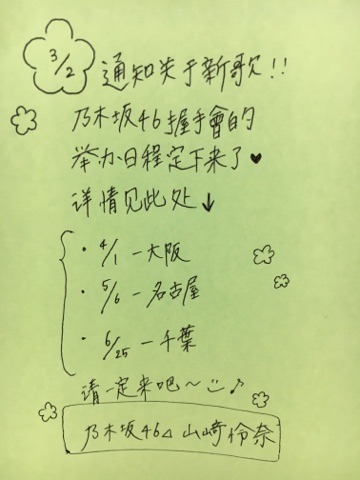 3/2
通知关于新歌!!
乃木坂46握手會的
举办日程定下来了♥
详情见此处↓
・4/1 - 大阪
・5/6 - 名古屋
・6/25 - 千葉
请一定来吧～☺♪
乃木坂46△ 山崎伶奈